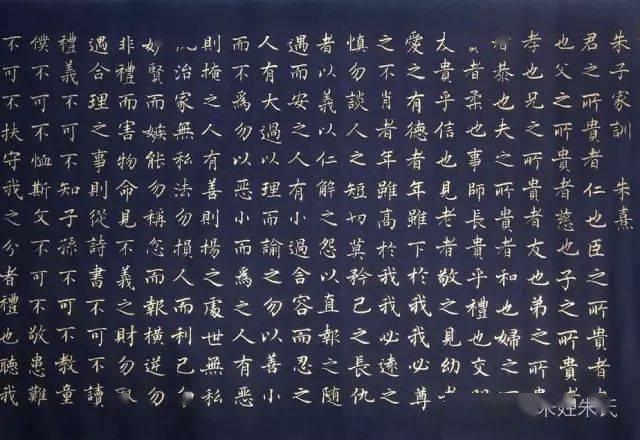 朱子家訓 朱熹
君之所貴者仁也臣之所貴者
也父之所貴者慈也子之所貴者
孝也兄之所貴者友也弟之所
者恭也夫之所貴者和也婦之所
者柔也事師長貴乎禮也交
友貴乎信也見老者敬之見幼者
愛之有德者年雖下於我我必尊
之不肖者年雖高於我我必遠之
慎勿談人之短切莫矜己之長仇
者以義以仁解之怨以直報之隨
遇而安之人有小過含容而忍之
人有大過以理而諭之勿以善小
而不為勿以惡小而為之人有惡
則掩之人有善則揚之處世無私
治家無私法勿損人而利己勿
妒賢而嫉能勿稱忿而報橫逆勿
非禮而害物命見不義之財勿
遇合理之事則從詩書不可不讀
禮義不可不知子孫不可不教童
僕不可不恤斯文不可不敬患難
不可不扶守我之分者禮也聽我